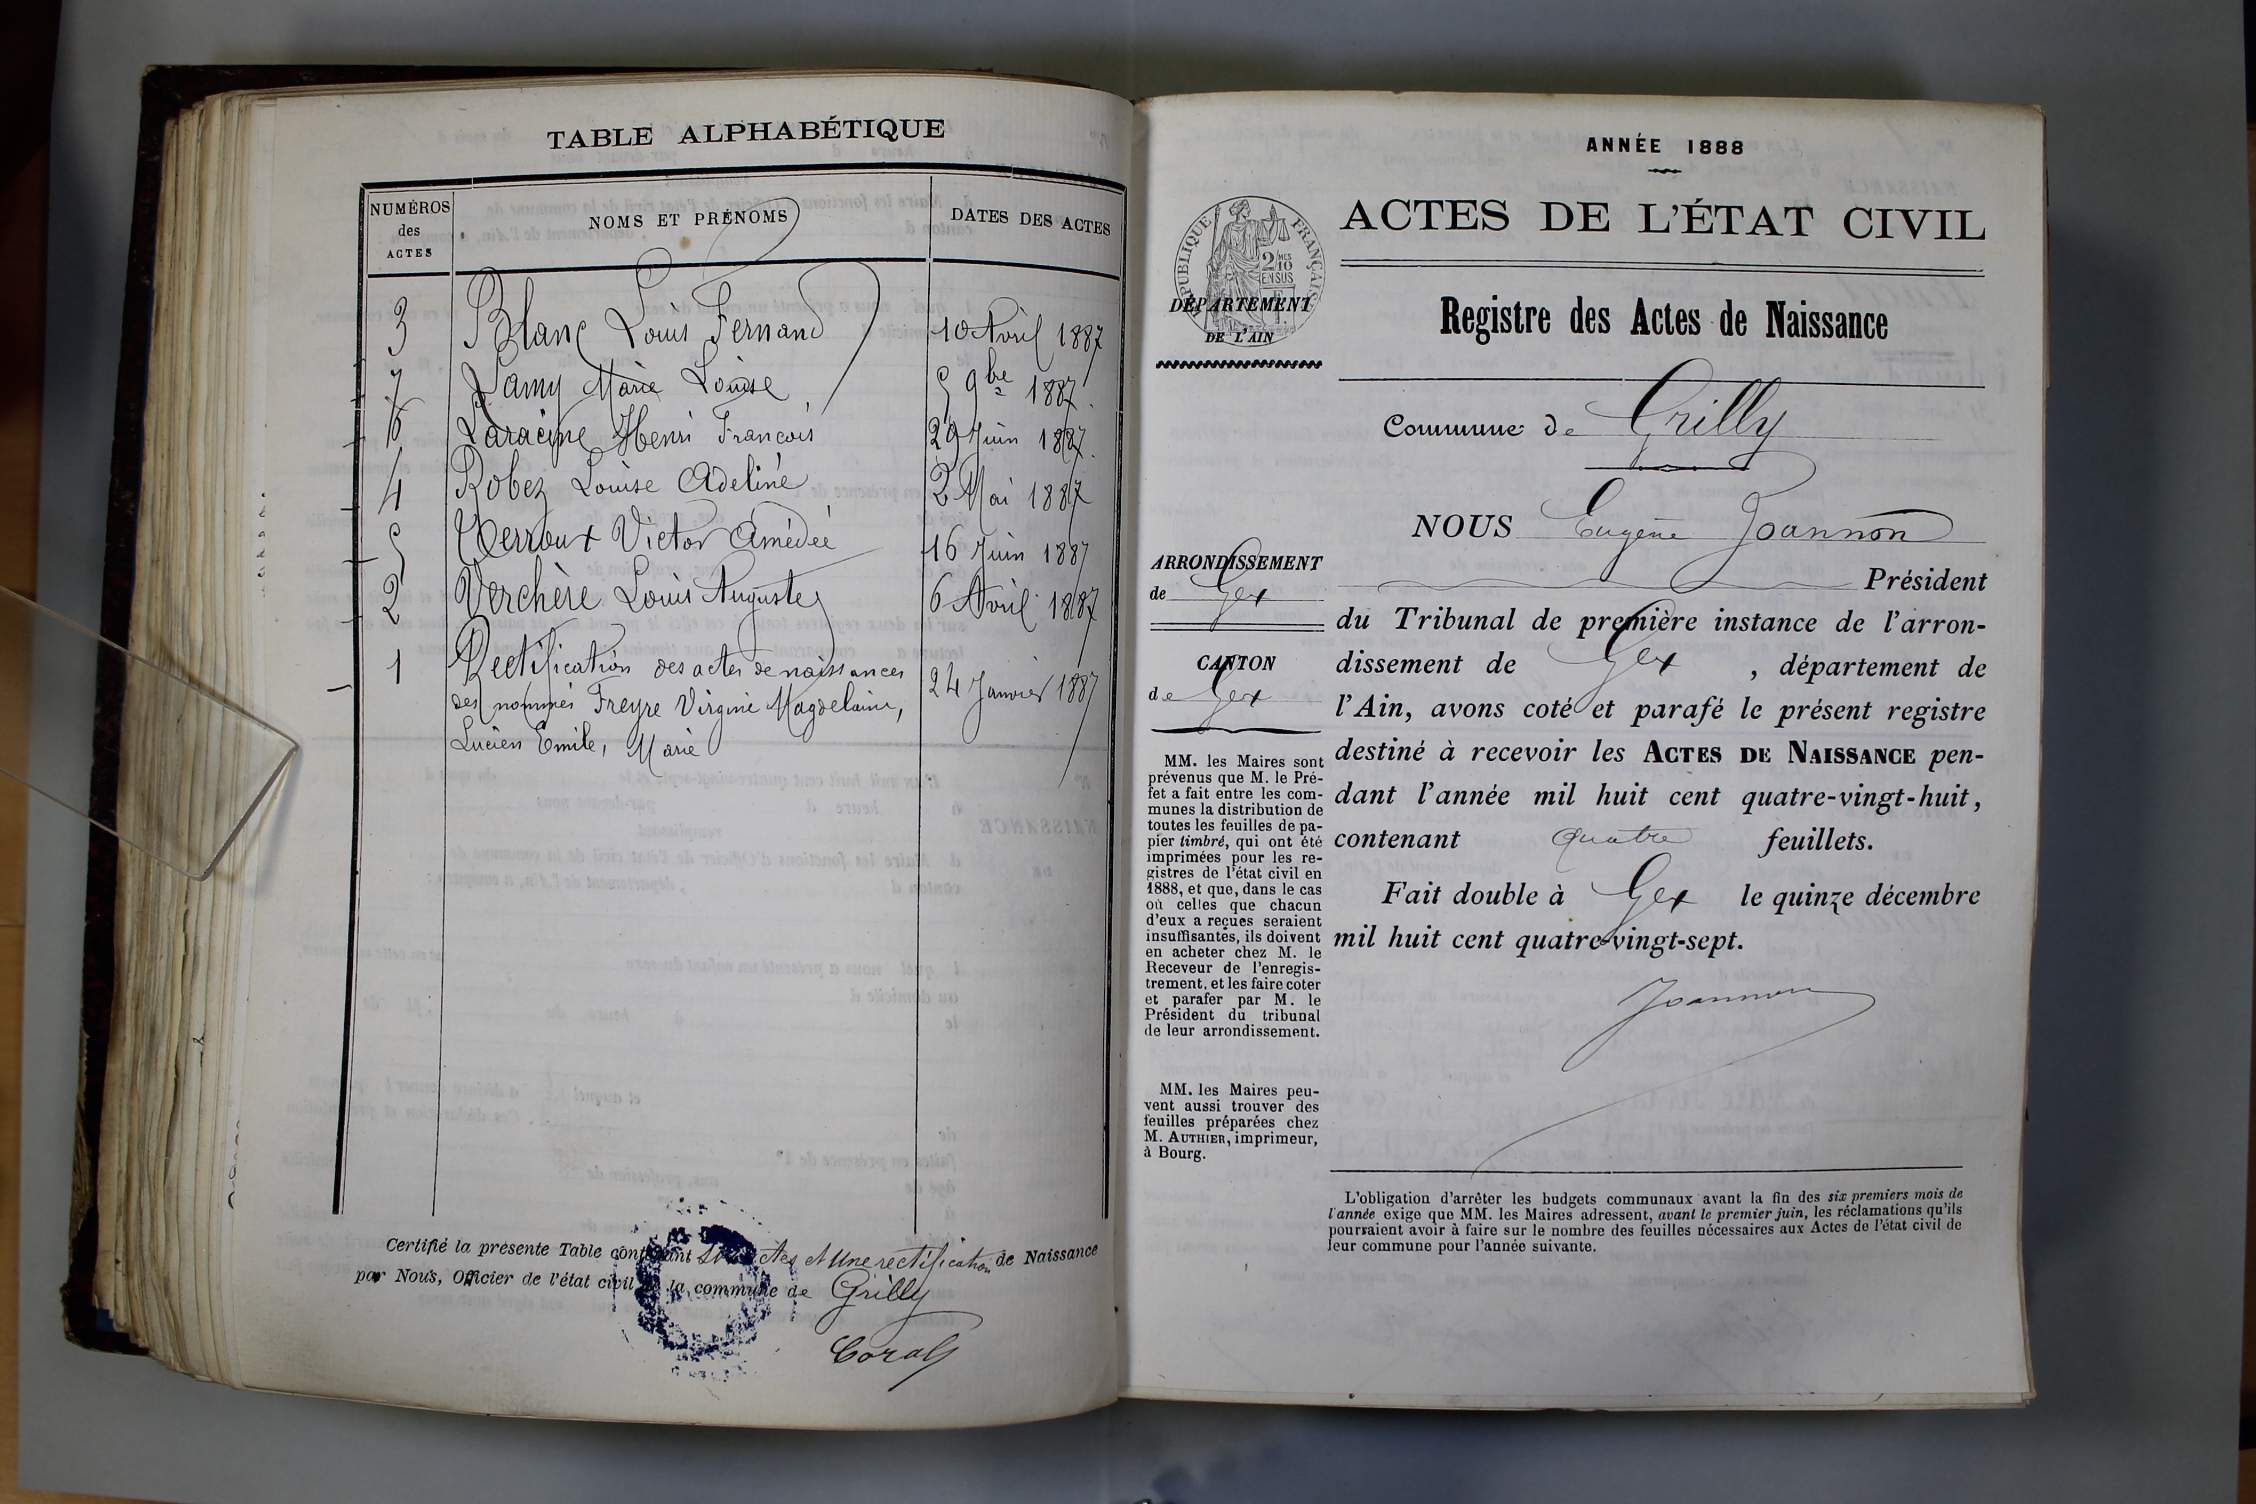 TABLE ALPHABÉTIQUE
NUMÉROS des ACTES
NOMS ET PRÉNOMS
DATES DES ACTES
3 Blanc Louis Fernand 10 Avril 1887
7 Lamy Marie Louise 5 9bre 1887.
6 Laracine Henri François 29 Juin 1887.
4 Robez Louise Adeline 2 Mai 1887
5 Verroux Victor Amédée 16 Juin 1887
2 Verchère Louis Auguste 6 Avril 1887
1 Rectification des actes de naissances
des nommés Freyre Virginie Magdelaine, 24 Janvier 1887
Lucien Emile, Marie
Certifié la présente Table contenant six actes et une rectification de Naissance
par Nous, Officier de l'état civil de la commune de Grilly
ANNÉE 1888
ACTES DE L'ÉTAT CIVIL
RÉPUBLIQUE FRANÇAISE
2/10 MES
EN SUS
DÉPARTEMENT
DE L'AIN
Registre des Actes de Naissance
Commune de Grilly
ARRONDISSEMENT
de Gex
CANTON
de Gex
MM. les Maires sont
prévenus que M. le Pré-
fet a fait entre les com-
munes la distribution de
toutes les feuilles de pa-
pier timbré, qui ont été
imprimées pour les re-
gistres de l'état civil en
1888, et que, dans le cas
où celles que chacun
d'eux a reçues seraient
insuffisantes, ils doivent
en acheter chez M. le
Receveur de l'enregis-
trement, et les faire coter
et parafer par M. le
Président du tribunal
de leur arrondissement.
MM. les Maires peu-
vent aussi trouver des
feuilles préparées chez
M. AUTHIER, imprimeur,
à Bourg.
NOUS Eugène Joannon
Président
du Tribunal de première instance de l'arron-
dissement de Gex, département de
l'Ain, avons coté et parafé le présent registre
destiné à recevoir les ACTES DE NAISSANCE pen-
dant l'année mil huit cent quatre-vingt-huit,
contenant quatre feuillets.
Fait double à Gex le quinze décembre
mil huit cent quatre-vingt-sept.
Joannon
L'obligation d'arrêter les budgets communaux avant la fin des six premiers mois de
l'année exige que MM. les Maires adressent, avant le premier juin, les réclamations qu'ils
pourraient avoir à faire sur le nombre des feuilles nécessaires aux Actes de l'état civil de
leur commune pour l'année suivante.